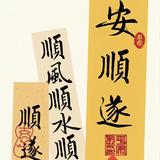 安順遂
順風順水順
順遂